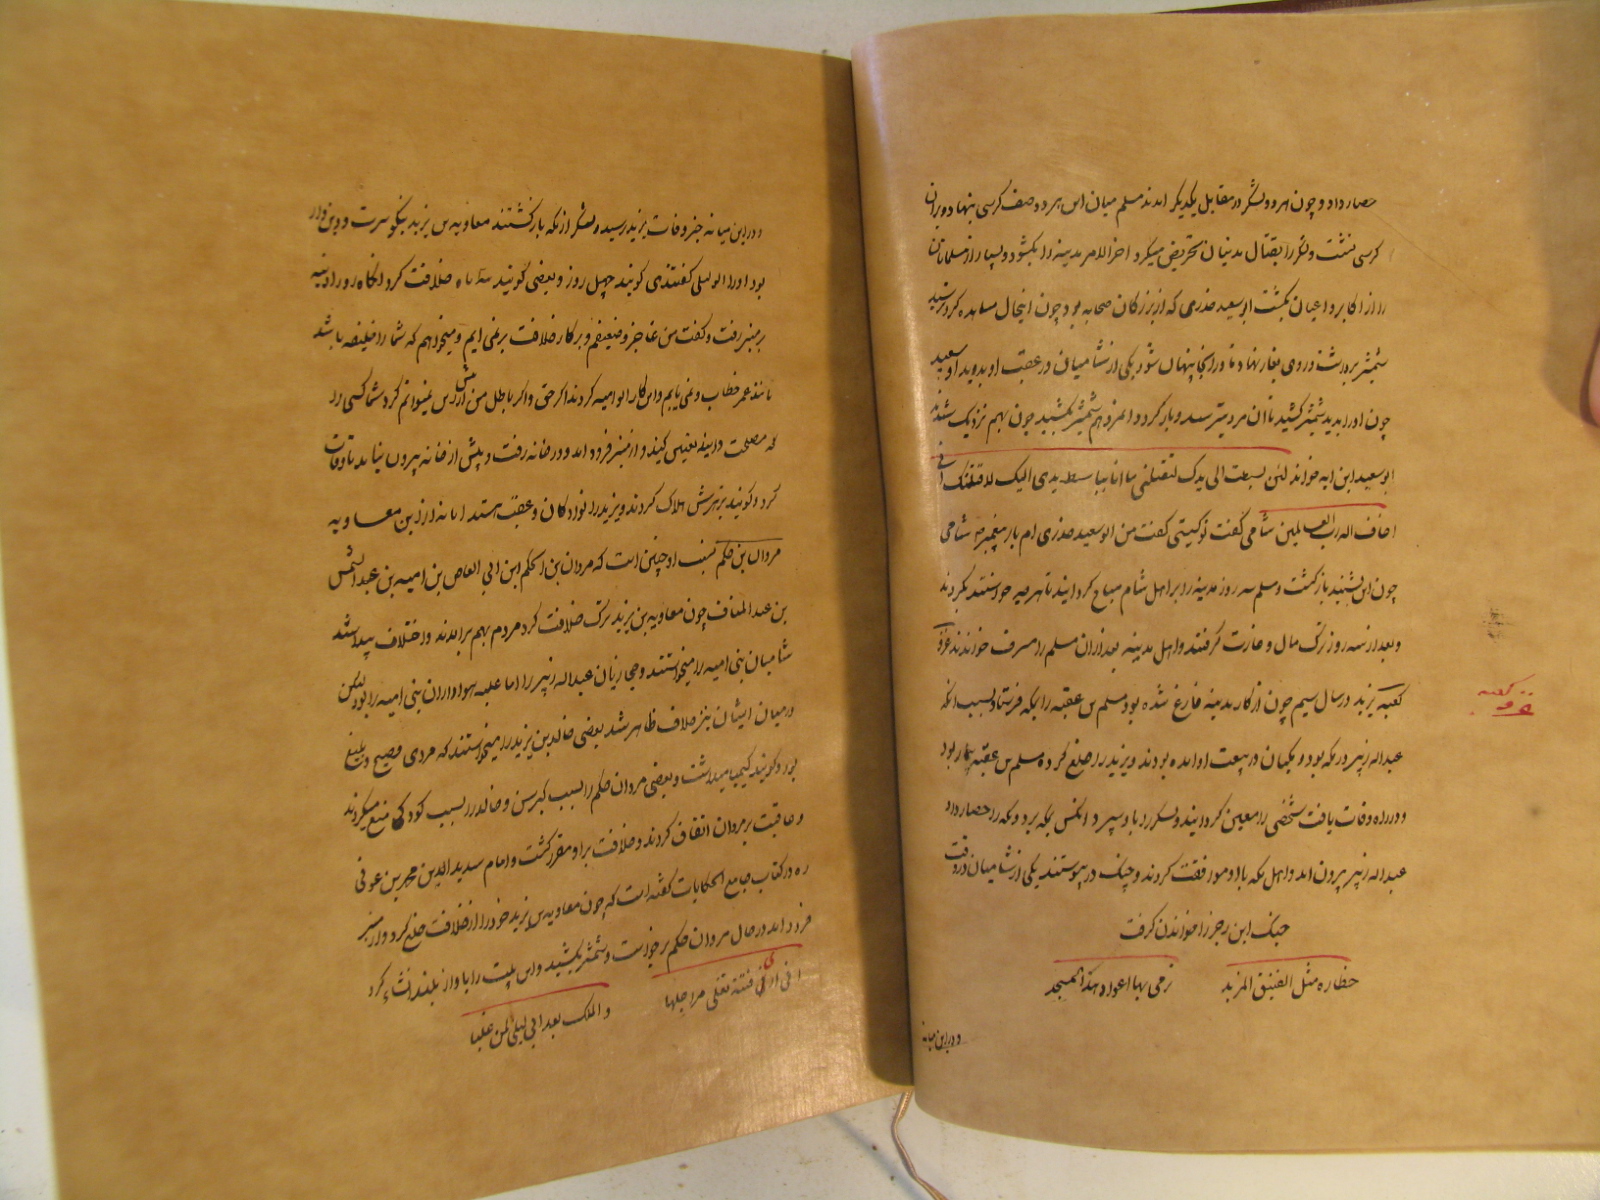 حصار داد و چون هر دو لشکر در مقابل یکدیگر امدند مسلم میان این هر دو صف کرسی بنهاد و بران
کرسی نشست و لشکر را بقتال مدنیان تحریض میکرد اخر الامر مدینه را بکشود و بسیار از مسلمانان
را از اکابر و اعیان بکشت ابو سعید خدری که از بزرکان صحابه بود چون اینحال مشاهده کرد
شمشیر برداشت و روی بغار نهاد تا در انجا پنهان شود یکی از شامیان در عقب او بدوید ابو سعید
چون او را بدید شمشیر کشید تا ان مرد بترسد و باز کردد و انمرد هم شمشیر بکشید چون بهم نزدیک شدند
ابو سعید این ایه خواند لئن بسطت الی یدک لتقتلنی ما انا بباسط یدی الیک لاقتلک انی
اخاف اله رب العالمین شامی کفت تو کیستی کفت من ابو سعید خدری ام یار پیغمبر شامی
چون این بشنید باز کشت و مسلم سه روز مدینه را بر اهل شام مباح کردانید تا هر چه خواستند بکردند
و بعد از سه روز ترک مال و غارت کرفتند و اهل مدینه بعد ازان مسلم را مسرف خواندند غزو
کعبه یزید در سال سیم چون از کار مدینه فارغ شده بود مسلم بن عقبه را بمکه فرستاد بسبب انکه
عبد اله زبیر در مکه بود و مکیان در بیعت او امده بودند و یزید را خلع کرده مسلم بن عقبه بیمار بود
و در راه وفات یافت شخصی را معین کردانید و لشکر را باو سپرد انکس بمکه برد و مکه را حصار داد
عبد اله زبیر بیرون امد و اهل مکه با او موافقت کردند و جنک در پیوستند یکی از شامیان در وقت
جنک این رجز را خواندن کرفت
خطاره مثل الفنیق المزبد ترمی بها اعواد هذا المسجد
و در این میانه
غزو کعبه
و در این میانه خبر وفات یزید رسید و لشکر از مکه باز کشتند معاویه بن یزید نیکو سیرت و دین دار
بود او را ابو لیلی کفتندی کویند چهل روز و بعضی کویند سه ماه خلافت کرد انکاه روز ادینه
بر منبر رفت و کفت من عاجز و ضعیفم و بر کار خلافت بر نمی ایم و میخواهم که شما را خلیفه باشد
مانند عمر خطاب و نمی یابم و این کار ابو امیه کردند اکر حق و اکر باطل من بیش ازین نمیتوانم کرد شما کسی را
که مصلحت دانید تعیین کنید و از منبر فرود امد و در خانه رفت و بیش از خانه بیرون نیامد تا وفات
کرد و کویند بزهرش هلاک کردند و یزید را نوادکان و عقب هستند اما نه از این معاویه
مروان بن حکم نسب او چنین است که مروان بن الحکم ابن ابی العاص بن امیه بن عبد الشمس
بن عبد المناف چون معاویه بن یزید ترک خلافت کرد مردم بهم برامدند و اختلاف پیدا شد
شامیان بنی امیه را میخواستند و حجازیان عبد اله زبیر را اما غلبه هواداران بنی امیه را بود لیکن
در میان ایشان نیز خلاف ظاهر شد بعضی خالد بن یزید را میخواستند که مردی فصیح و بلیغ
بود و کویند کیمیا میدانست و بعضی مروان حکم را بسبب کبر سن و خالد را بسبب کودکی منع میکردند
و عاقبت بر مروان اتفاق کردند و خلافت بر او مقرر کشت و امام سدید الدین محمد بن عوفی
ره در کتاب جامع الحکایات کفته است که چون معاویه بن یزید خود را از خلافت خلع کرد و از منبر
فرود امد در حال مروان حکم بر خواست و شمشیر بکشید و این بیت را باواز بلند انشاء کرد
انی اری فتنة تغلی مراجلها و الملک بعد ابی لیلی لمن غلبا